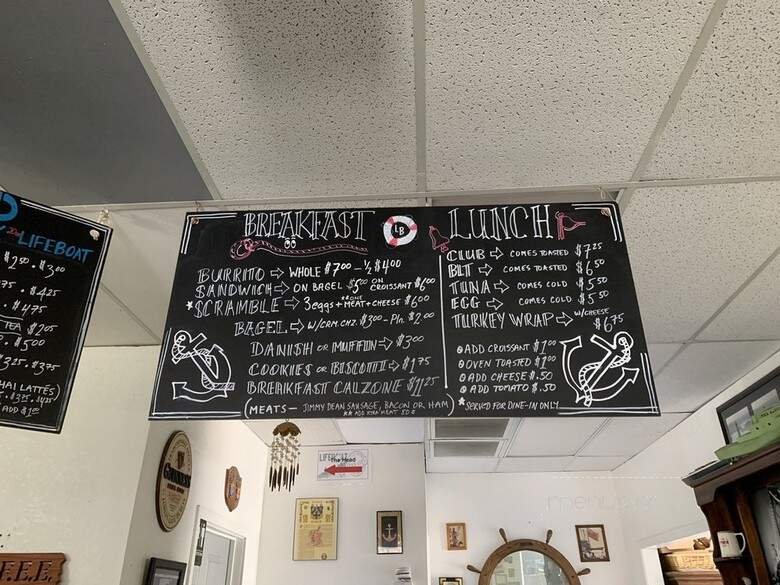 LIFEBOAT
$2.50 . $3.00
75 . $4.25
. $4.75
TEA $2.05
. $5.00
3.25 . $3.75
HAI LATTÉS)
ADD $1.00
BREAKFAST
BURRITO ⇨ WHOLE $7.00 – ½ $4.00
SANDWICH ⇨ ON BAGEL $5.00 ON CROISSANT $6.00
*SCRAMBLE ⇨ 3 eggs + MEAT + CHEESE $6.00
BAGEL ⇨ W/CRM. CHZ. $3.00 – Pln. $2.00
DANISH OR MUFFIN ⇨ $3.00
COOKIES OR BISCOTTI ⇨ $1.75
BREAKFAST CALZONE $11.25
(MEATS – JIMMY DEAN SAUSAGE, BACON OR HAM)
** ADD XTRA MEAT .50¢
LB
LUNCH
CLUB ⇨ COMES TOASTED $7.25
BLT ⇨ COMES TOASTED $6.50
TUNA ⇨ COMES COLD $5.50
EGG ⇨ COMES COLD $5.50
TURKEY WRAP ⇨ W/CHEESE $6.75
ADD CROISSANT $1.00
OVEN TOASTED $1.00
ADD CHEESE $.50
ADD TOMATO $.50
* SERVED FOR DINE-IN ONLY
GUINNESS
LIFEBOAT
The Head
F.E.E.